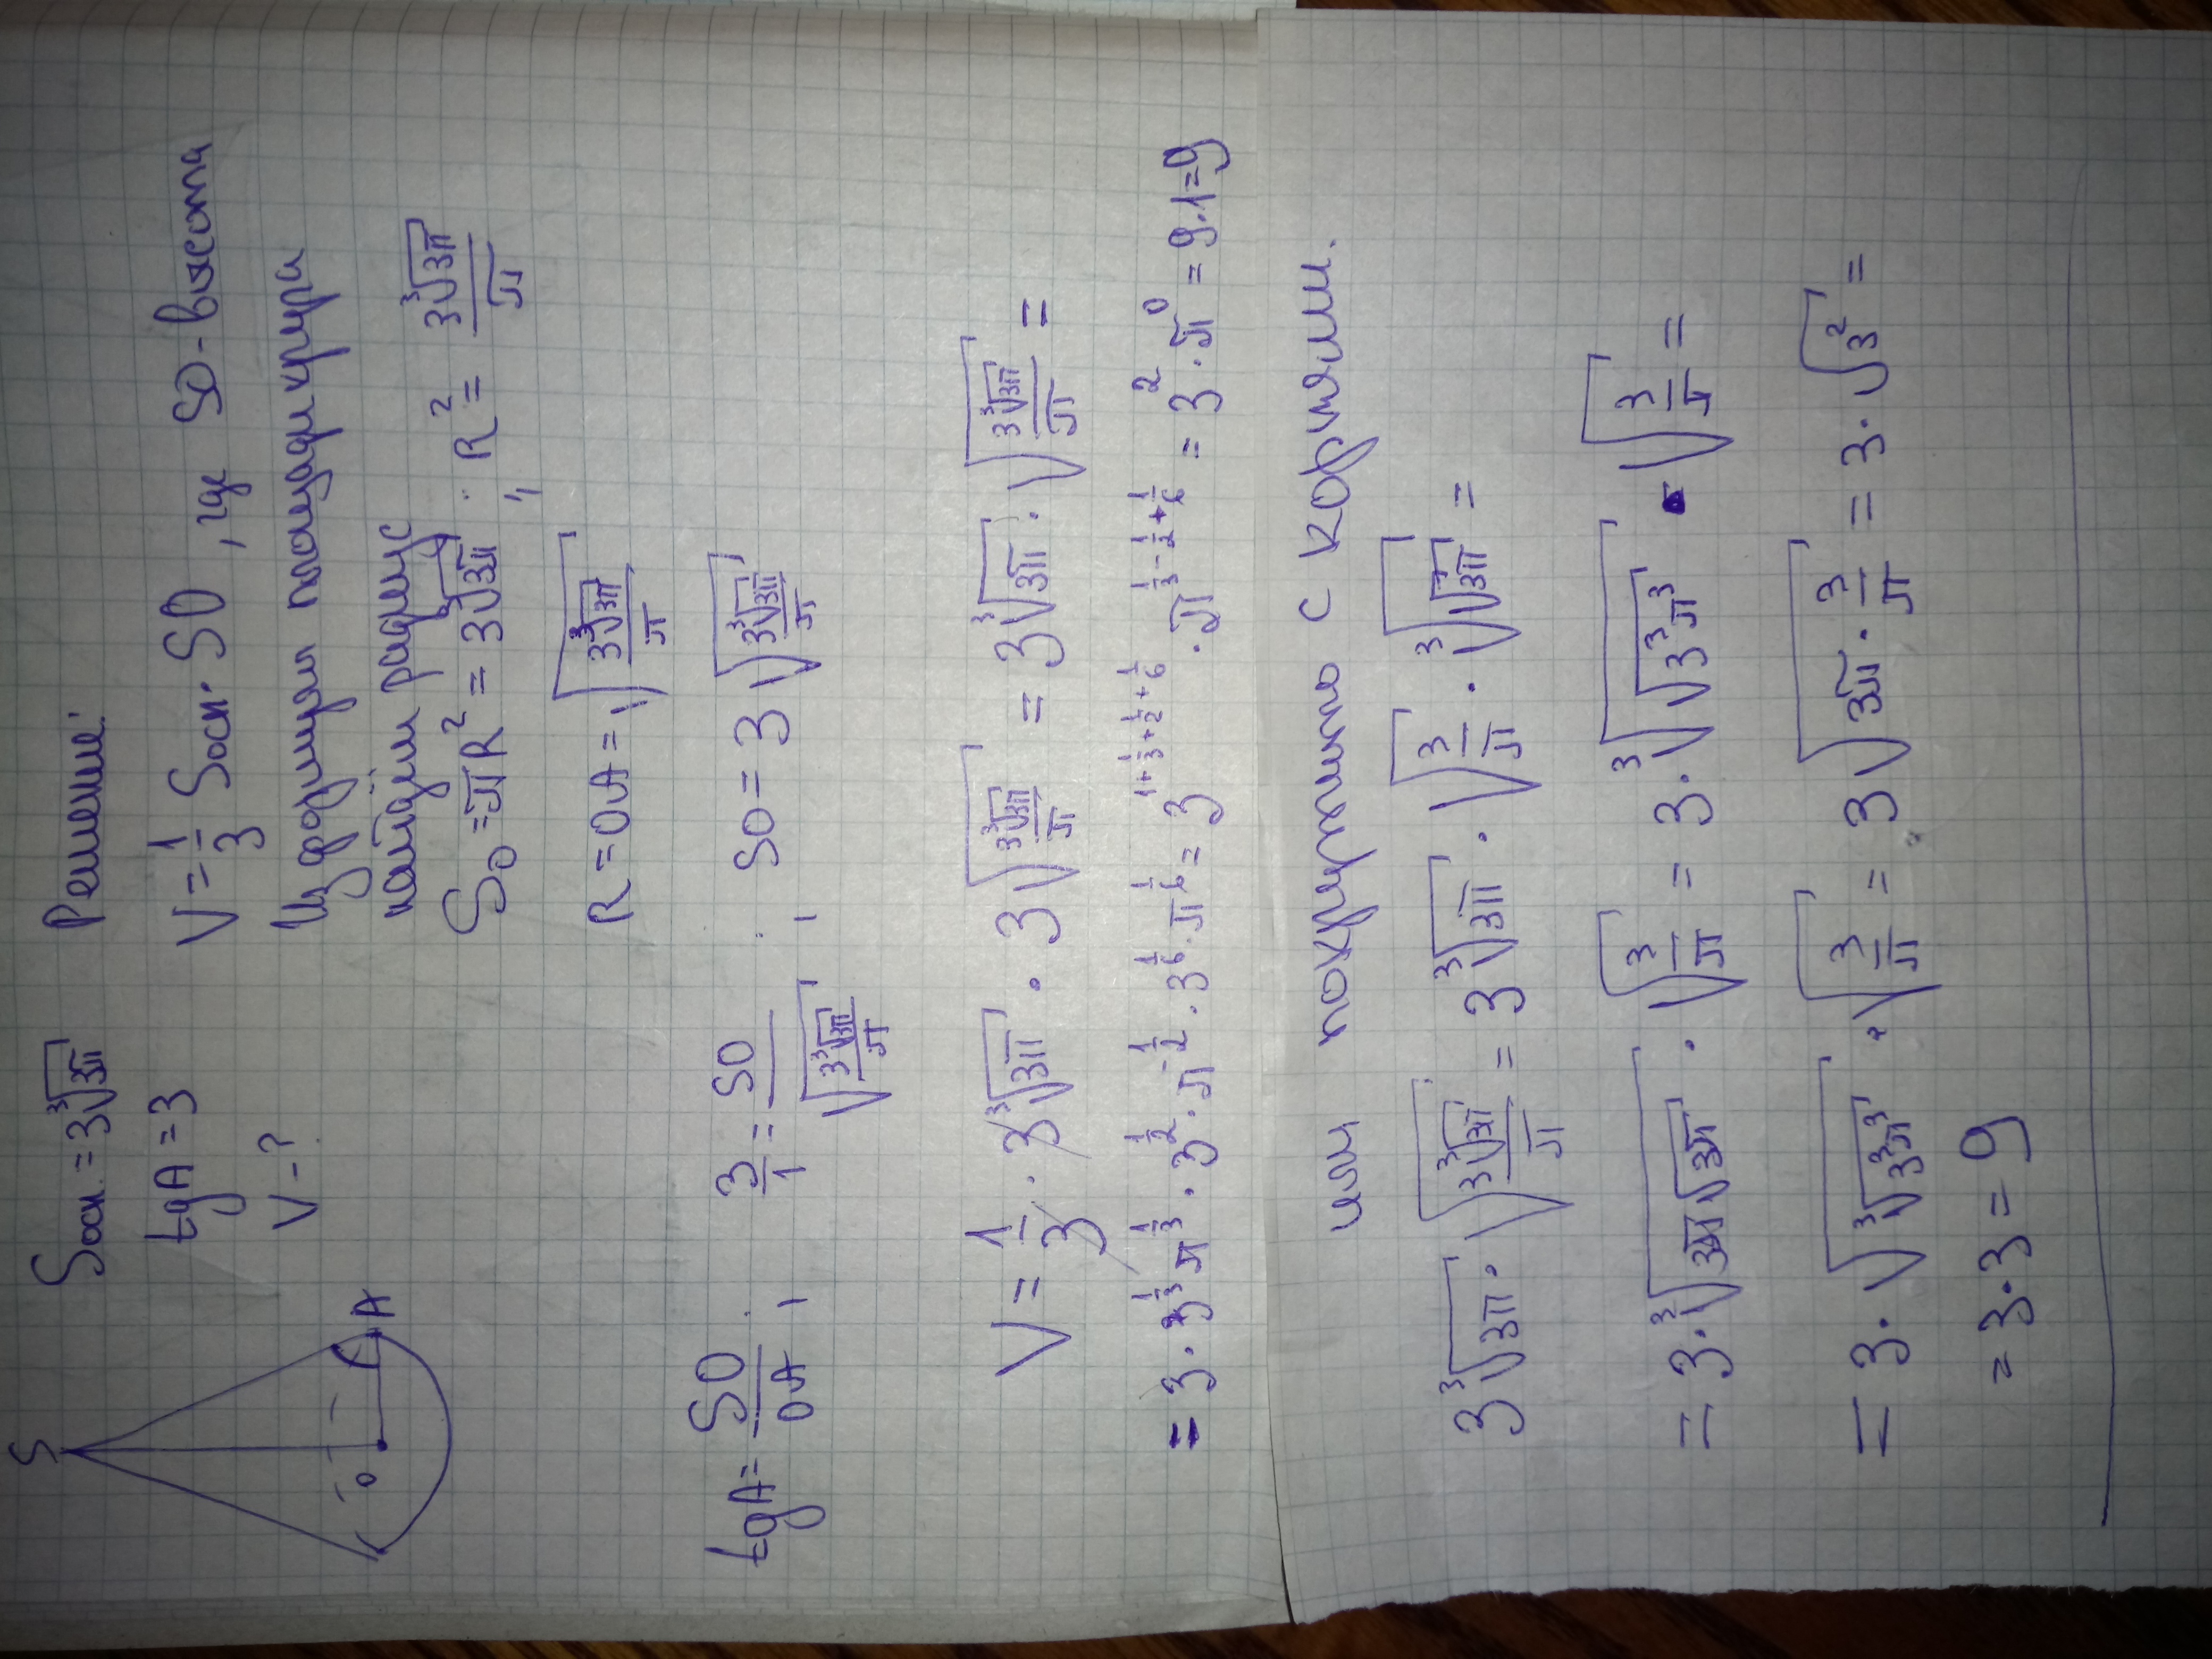 S
O
A
Sосн. = 3∛(3π)
tgA = 3
V - ?
Решение:
V = 1/3 Sосн. · SO, где SO - высота
Из формулы площади круга
найдём радиус
S₀ = πR² = 3∛(3π) ; R² = 3∛(3π)/π
R = OA = √(3∛(3π)/π)
tgA = SO/OA ; 3/1 = SO/√(3∛(3π)/π) ; SO = 3√(3∛(3π)/π)
V = 1/3 · 3∛(3π) · 3√(3∛(3π)/π) = 3∛(3π) · √(3∛(3π)/π) =
= 3 · 3^(1/3) π^(1/3) · 3^(1/2) · π^(-1/2) · 3^(1/6) · π^(1/6) = 3^(1+1/3+1/2+1/6) · π^(1/3-1/2+1/6) = 3² · π⁰ = 9·1=9
или покрутить с корнями.
3∛(3π) · √(3∛(3π)/π) = 3∛(3π) · √(3/π) · ∛(√(3π)) =
= 3 · ∛(3π√(3π)) · √(3/π) = 3 · ∛(√(3³π³)) · √(3/π) =
= 3 · √(∛(3³π³)) · √(3/π) = 3√(3π · 3/π) = 3 · √(3²) =
= 3 · 3 = 9